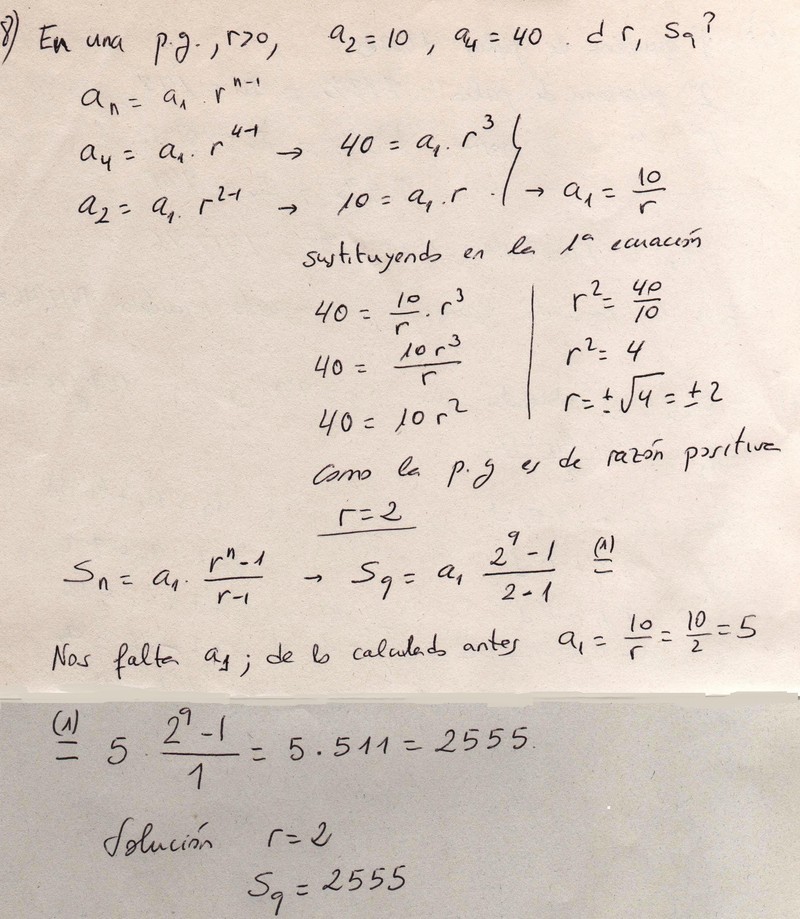 8) En una p.g., r>0, a₂ = 10, a₄ = 40. d r, S₉?
aₙ = a₁ · rⁿ⁻¹
a₄ = a₁ · r⁴⁻¹ → 40 = a₁ · r³
a₂ = a₁ · r²⁻¹ → 10 = a₁ · r. → a₁ = 10/r
sustituyendo en la 1ª ecuación
40 = 10/r · r³
40 = 10r³/r
40 = 10r²
r² = 40/10
r² = 4
r = ±√4 = ±2
Como la p.g es de razón positiva
r = 2
Sₙ = a₁ · (rⁿ-1)/(r-1) → S₉ = a₁ (2⁹-1)/(2-1) (1)=
Nos falta a₁; de lo calculado antes a₁ = 10/r = 10/2 = 5
(1)= 5 · (2⁹-1)/1 = 5 · 511 = 2555.
Solución r = 2
S₉ = 2555